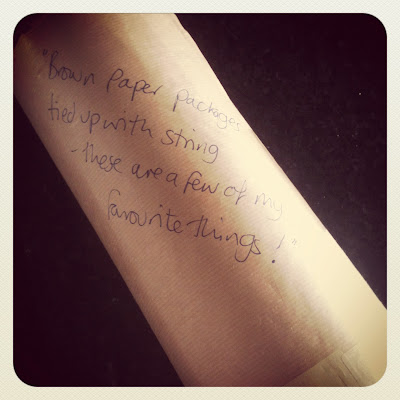 "Brown paper packages
tied up with string
- these are a few of my
favourite things!"